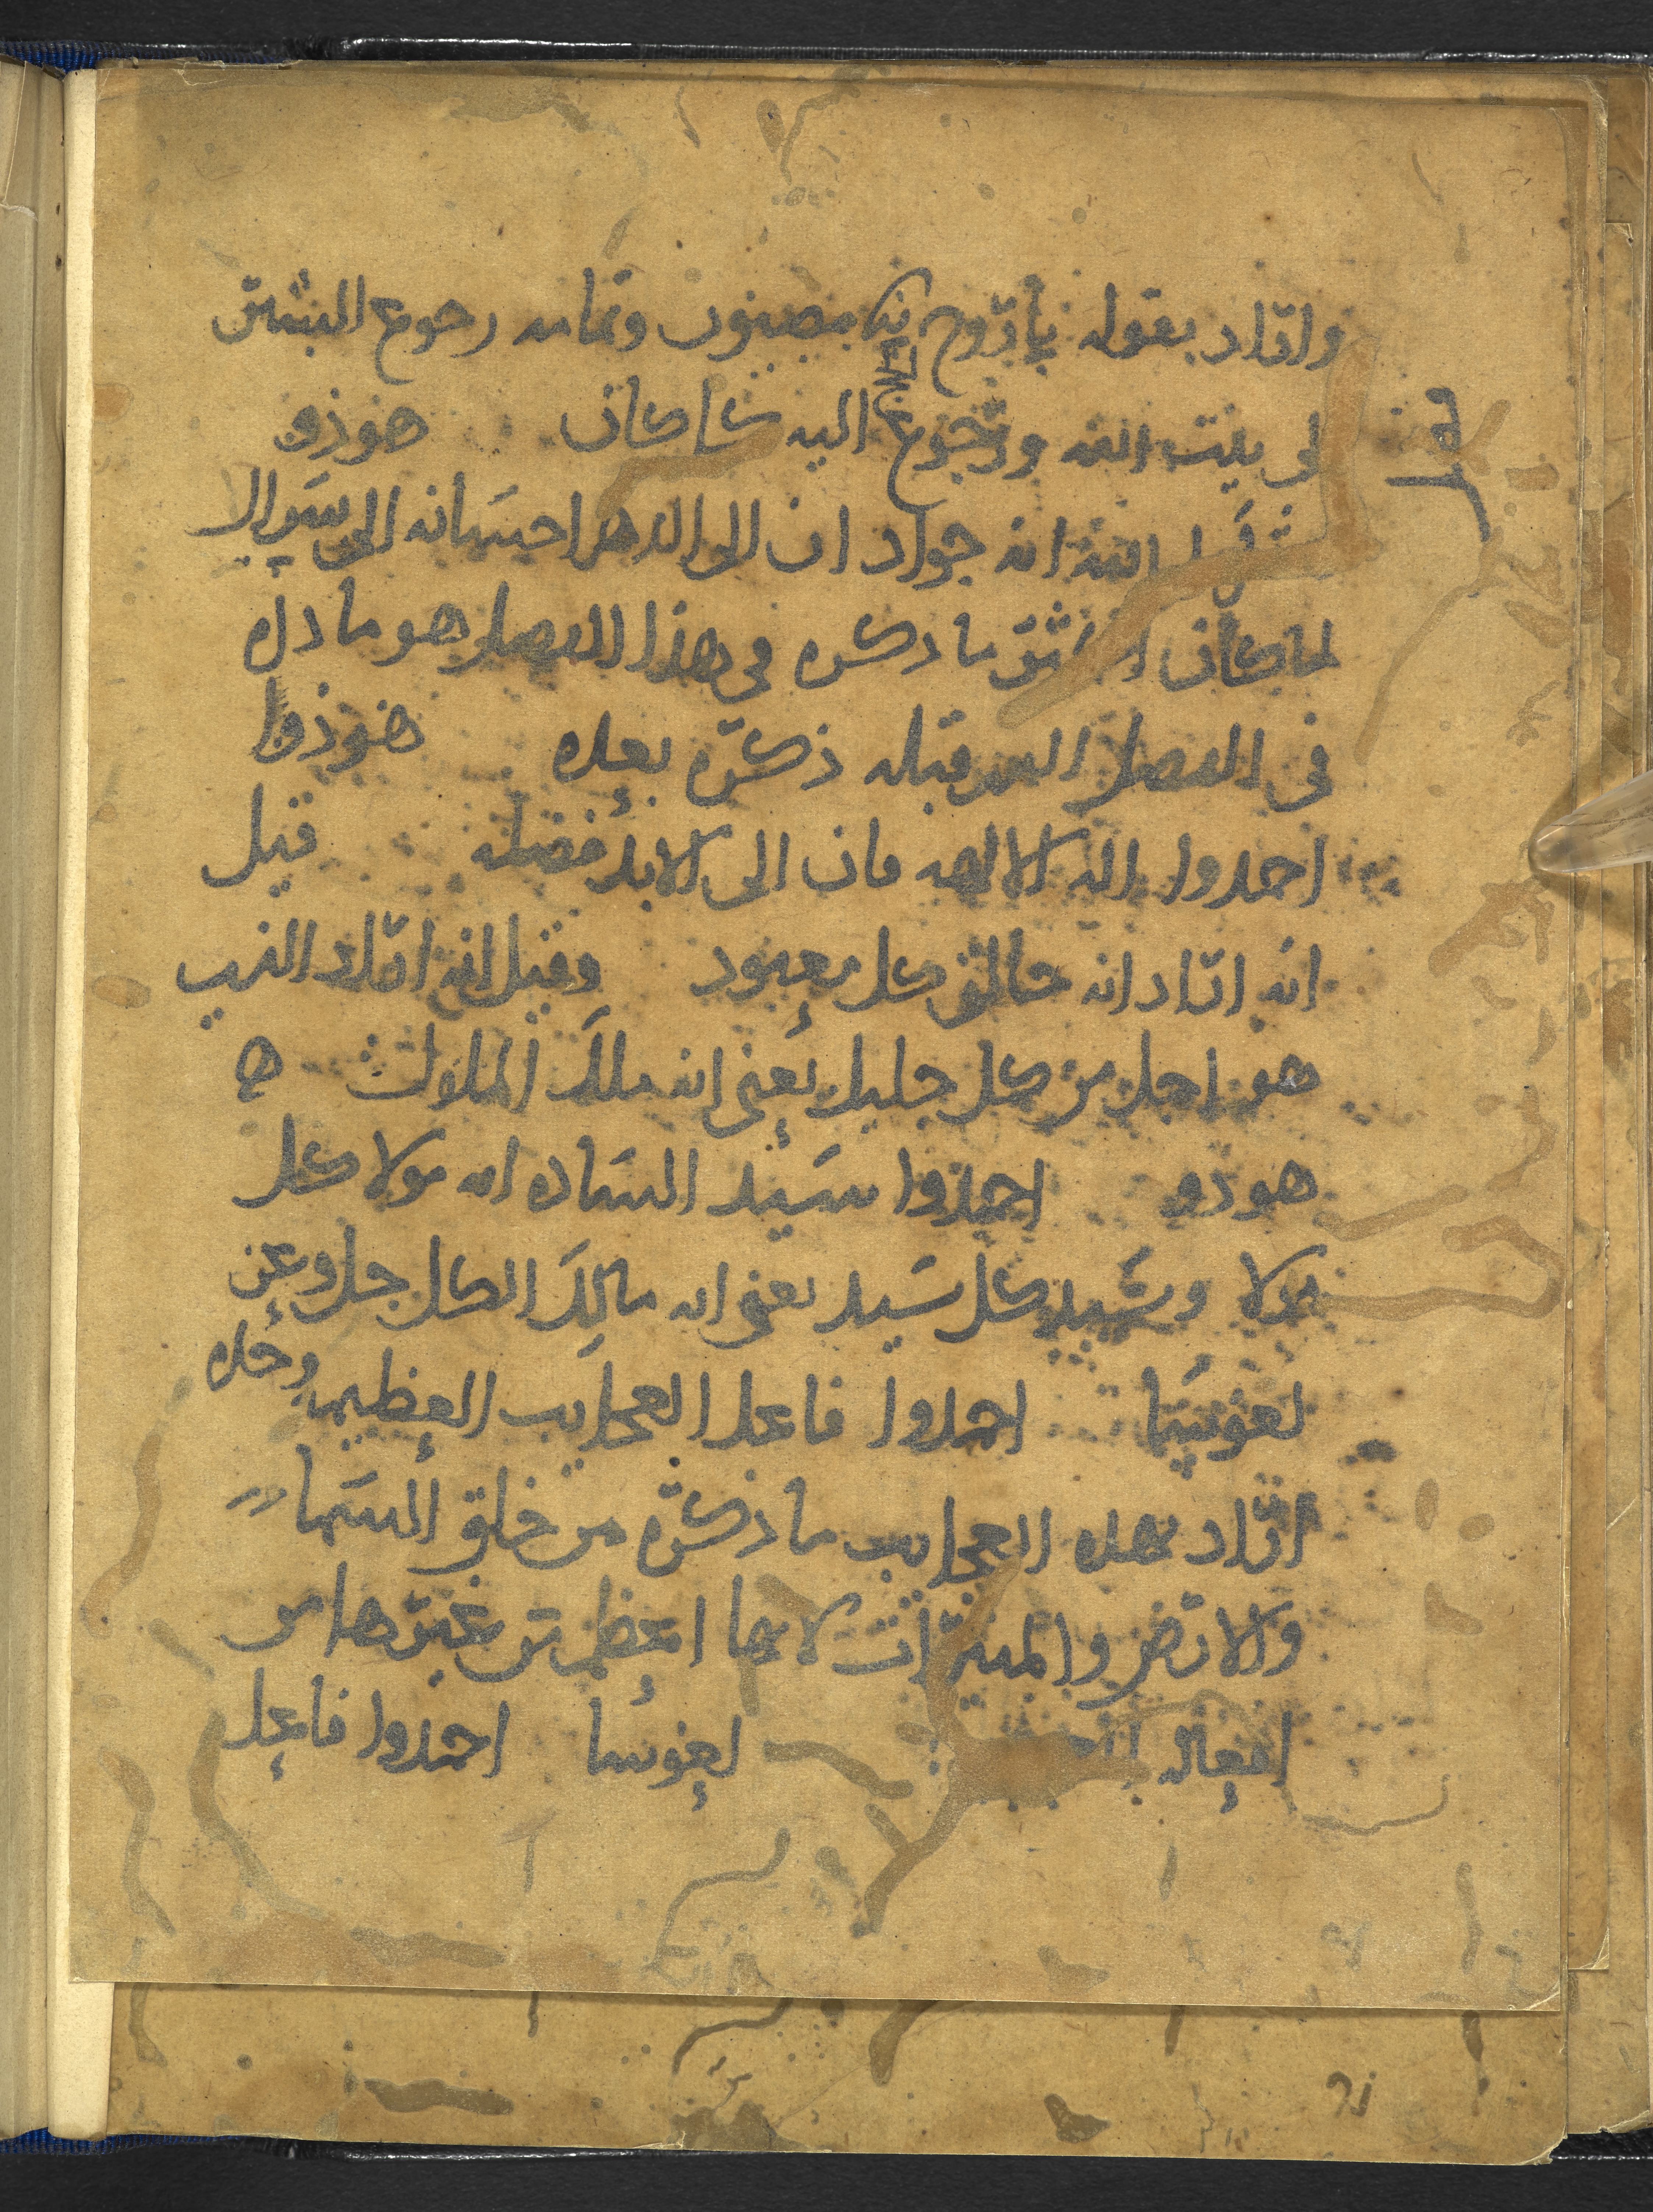 واراد بقوله ياروح نيحوح بصيون وتمامه رجوع البشر
لى بيت الله ورجوع اليه كما كان هوذو
الله انه جواد ان الى الدهر احسانه الى سوال
لما كان ما ذكره فى هذا الفصل هو ما ذكره
فى الفصل الدى قبله ذكره بعده هوذوا
احمدوا اله الالهه فان الى الابد فضله قيل
انه اراد انه خالق كل معبود وقيل انه اراد الذى
هو اجل من كل جليل يعنى انه ملك الملوك ه
هوذو احمدوا سيد الساده انه مولا كل
مولا وسيد كل سيد يعنى انه مالك الكل جل وعز
لعوسا احمدوا فاعل العجايب العظيمه وحده
اراد بهده العجايب ما ذكره من خلق السما
والارض والنيرات لانها اعظم من غيرها من
افعاله لعوسا احمدوا فاعل